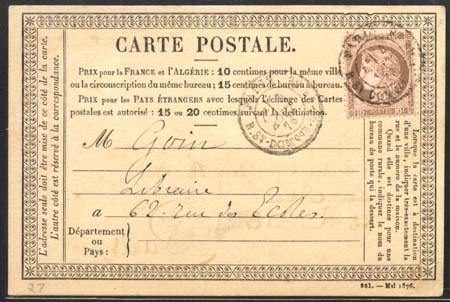 CARTE POSTALE.
PRIX pour la FRANCE et l'ALGÉRIE: 10 centimes pour la même ville
ou la circonscription du même bureau; 15 centimes de bureau à bureau.
PRIX pour les PAYS ÉTRANGERS avec lesquels l'échange des Cartes
postales est autorisé: 15 ou 20 centimes suivant la destination.
M Goin
Libraire
a 62 rue des Ecoles.
Département
ou
Pays:
L'adresse seule doit être mise de ce côté de la carte.
L'autre côté est réservé à la correspondance.
Lorsque la carte est à destination
d'une ville, indiquer très-exactement la
rue et le numéro de la maison.
Quand elle est destinée pour une
commune rurale, indiquer le nom du
bureau de poste qui la dessert.
R. ST-DOMQUE
10 10
981. — Mai 1876.
27